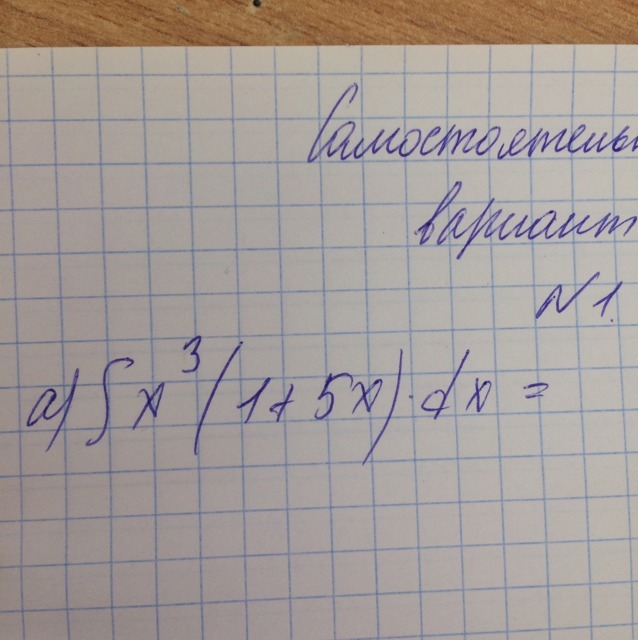 Самостоятельн
вариант
N1.
а) ∫x³(1+5x)·dx =